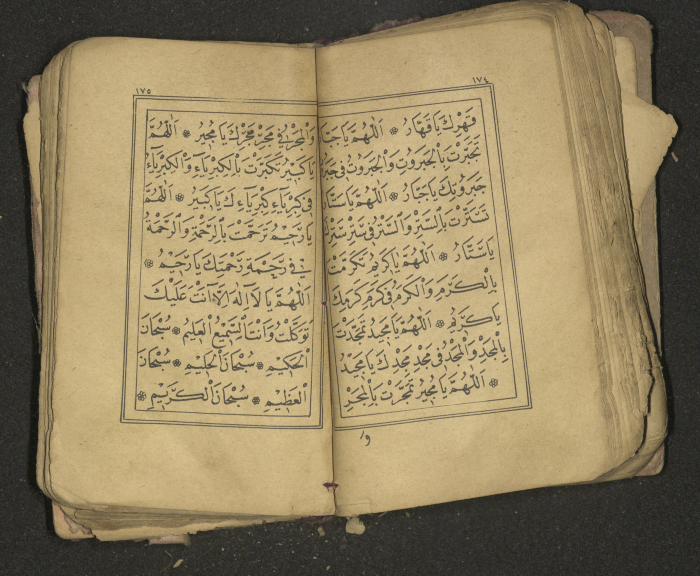 ١٧٤
قَهْرِكَ يَا قَهَّارُ ۞ اَللّٰهُمَّ يَا جَبَّارُ
تَجَبَّرْتَ بِالْجَبَرُوتِ وَالْجَبَرُوتُ فِي جَبَرُوتِ
جَبَرُوتِكَ يَا جَبَّارُ ۞ اَللّٰهُمَّ يَا سَتَّارُ
تَسَتَّرْتَ بِالسَّتْرِ وَالسَّتْرُ فِي سَتْرِ سَتْرِكَ
يَا سَتَّارُ ۞ اَللّٰهُمَّ يَا كَرِيمُ تَكَرَّمْتَ
بِالْكَرَمِ وَالْكَرَمُ فِي كَرَمِ كَرَمِكَ
يَا كَرِيمُ ۞ اَللّٰهُمَّ يَا مَجِيدُ تَمَجَّدْتَ
بِالْمَجْدِ وَالْمَجْدُ فِي مَجْدِ مَجْدِكَ يَا مَجِيدُ
۞ اَللّٰهُمَّ يَا مُجِيرُ تَمَجَّرْتَ بِالْمَجْرِ
و
١٧٥
وَالْمَجْرُ فِي مَجْرِ مَجْرِكَ يَا مُجِيرُ ۞ اَللّٰهُمَّ
يَا كَبِيرُ تَكَبَّرْتَ بِالْكِبْرِيَاءِ وَالْكِبْرِيَاءُ
فِي كِبْرِيَاءِ كِبْرِيَاءِكَ يَا كَبِيرُ ۞ اَللّٰهُمَّ
يَا رَحِيمُ تَرَحَّمْتَ بِالرَّحْمَةِ وَالرَّحْمَةُ
فِي رَحْمَةِ رَحْمَتِكَ يَا رَحِيمُ ۞
اَللّٰهُمَّ يَا لَا اِلٰهَ اِلَّا اَنْتَ عَلَيْكَ
تَوَكَّلْتُ وَاَنْتَ السَّمِيعُ الْعَلِيمُ ۞ سُبْحَانَ
الْحَكِيمِ ۞ سُبْحَانَ الْحَلِيمِ ۞ سُبْحَانَ
الْعَظِيمِ ۞ سُبْحَانَ الْكَرِيمِ ۞